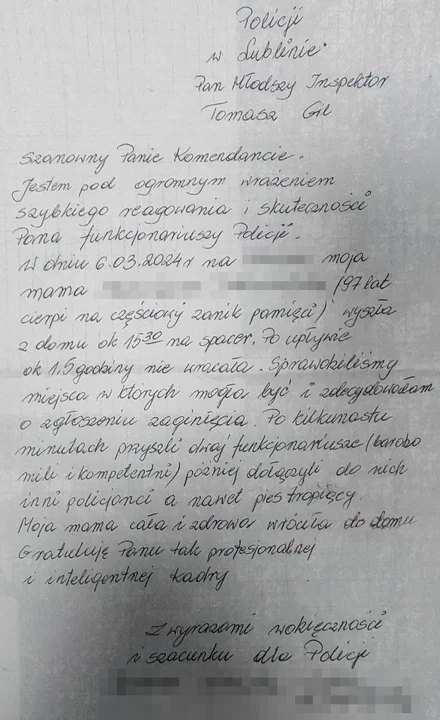 Policji
w Lublinie
Pan Młodszy Inspektor
Tomasz Gil
Szanowny Panie Komendancie.
Jestem pod ogromnym wrażeniem
szybkiego reagowania i skuteczności
Pana funkcjonariuszy Policji.
W dniu 6.03.2024r na moja
mama (97 lat
cierpi na częściowy zanik pamięci) wyszła
z domu ok 15³⁰ na spacer. Po upływie
ok 1.5 godziny nie wracała. Sprawdziliśmy
miejsca w których mogła być i zdecydowałam
o zgłoszeniu zaginięcia. Po kilkunastu
minutach przyszli dwaj funkcjonariusze (bardzo
mili i kompetentni) później dołączyli do nich
inni policjanci a nawet pies tropiący.
Moja mama cała i zdrowa wróciła do domu
Gratuluję Panu tak profesjonalnej
i inteligentnej kadry
Z wyrazami wdzięczności
i szacunku dla Policji